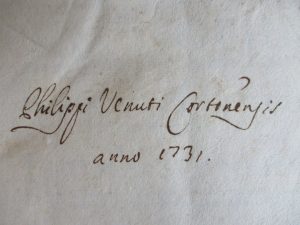 Philippi Venuti Cortonensis
anno 1731.